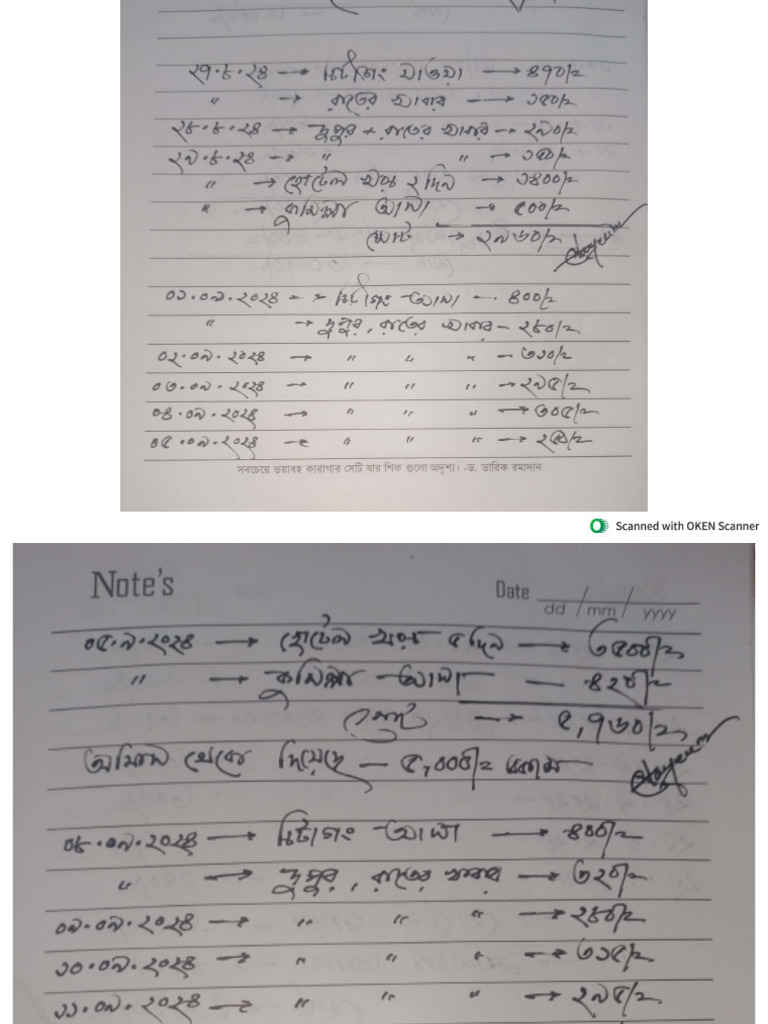 ২৭.৮.২৪ → চিটাগং যাওয়া → ৪৭০/=
" → রাতের খাবার → ১৫০/=
২৮.৮.২৪ → দুপুর + রাতের খাবার → ২৯০/=
২৯.৮.২৪ → " " → ১৫০/=
" → হোটেল খরচ ২ দিন → ১৪০০/=
" → কুমিল্লা আসা → ৫০০/=
মোট → ২৯৬০/=
০১.০৯.২০২৪ → চিটাগং আসা - ৪০০/=
" → দুপুর, রাতের খাবার - ২৮০/=
০২.০৯.২০২৪ → " " " - ৩১০/=
০৩.০৯.২০২৪ → " " " → ২৯৫/=
০৪.০৯.২০২৪ → " " " → ৩০৫/=
০৫.০৯.২০২৪ → " " " → ২৫০/=
সবচেয়ে ভয়াবহ কারাগার সেটি যার শিক গুলো অদৃশ্য। -ড. তারিক রমাদান
Scanned with OKEN Scanner
Note's
Date __/__/__
dd / mm / yyyy
০৫.৯.২০২৪ → হোটেল খরচ ৫ দিন → ৩৫০০/=
" → কুমিল্লা আসা — ৪২০/=
মোট → ৫,৭৬০/=
অফিস থেকে দিয়েছে - ৫,০০০/=
০৮.০৯.২০২৪ → চিটাগং আসা → ৪০০/=
" → দুপুর, রাতের খাবার → ৩২০/=
০৯.০৯.২০২৪ → " " " → ২৮০/=
১০.০৯.২০২৪ → " " " → ৩১৫/=
১১.০৯.২০২৪ → " " " → ২৯৫/=